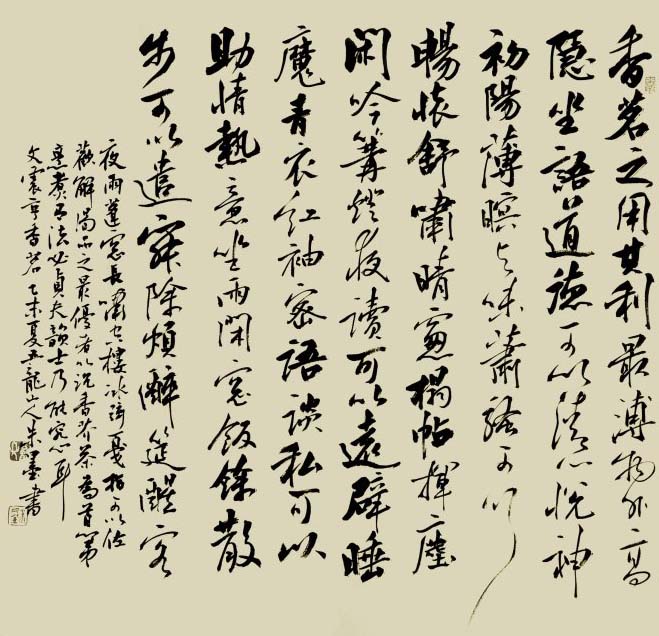 香茗之用其利最溥物外高
隱坐語道德可以清心悅神
初陽薄暝興味蕭騷可以
暢懷舒嘯晴窗榻帖揮麈
閑吟篝燈夜讀可以遠辟睡
魔青衣紅袖密語談私可以
助情熱意坐雨閉窗飯餘散
步可以遣寂除煩醉筵醒客
夜雨蓬窗長嘯空樓冰弦戛指可以佐
歡解渴品之最優者以沉香岕茶為首第
焚煮有法必貞夫韻士乃能究心耳
文震亨香茗 乙未夏五龍山人朱墨書